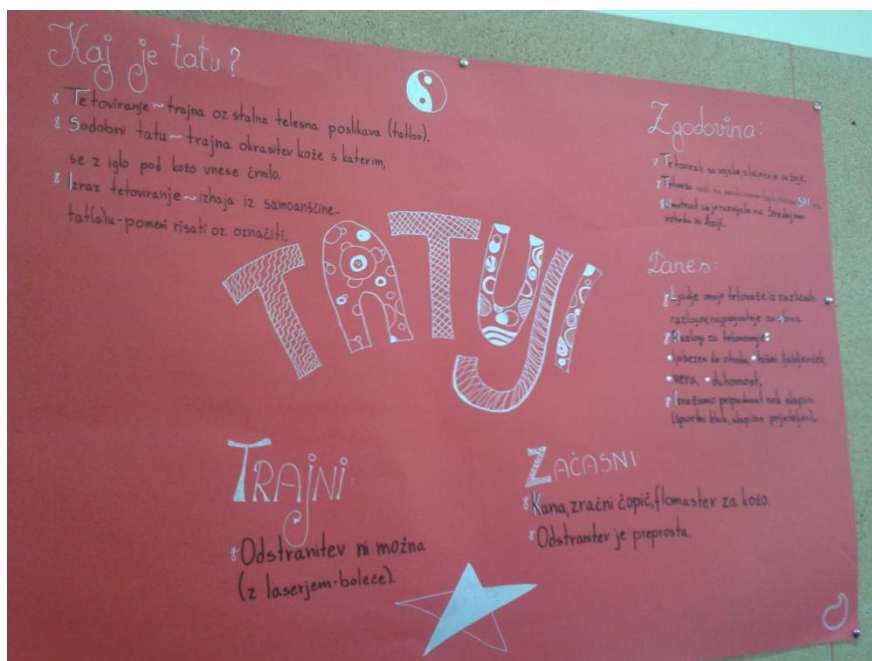 Kaj je tatu?
Tetoviranje~trajna oz stalna telesna poslikava (tattoo).
Sodobni tatu~trajna okrasitev kože s katerim,
se z iglo pod kožo vnese črnilo.
Izraz tetoviranje~izhaja iz samoanščine-
tatlalu-pomeni risati oz. označiti.
TATUJI
Zgodovina:
Tetovirali so vojake, zločince in sužnje.
Umetnost se je razvijala na Srednjem
vzhodu in Aziji.
Danes:
Ljudje imajo tetovaže iz različnih
razlogov, najpogosteje za okras.
Razlogi za tetoviranje:
ljubezen do otroka, hišni ljubljenček,
vera, duhovnost,
Izražamo pripadnost neki skupini
(športni klub, skupina prijateljev).
TRAJNI:
Odstranitev ni možna
(z laserjem-boleče).
ZAČASNI
Kana, zračni čopič, flomaster za kožo.
Odstranitev je preprosta.